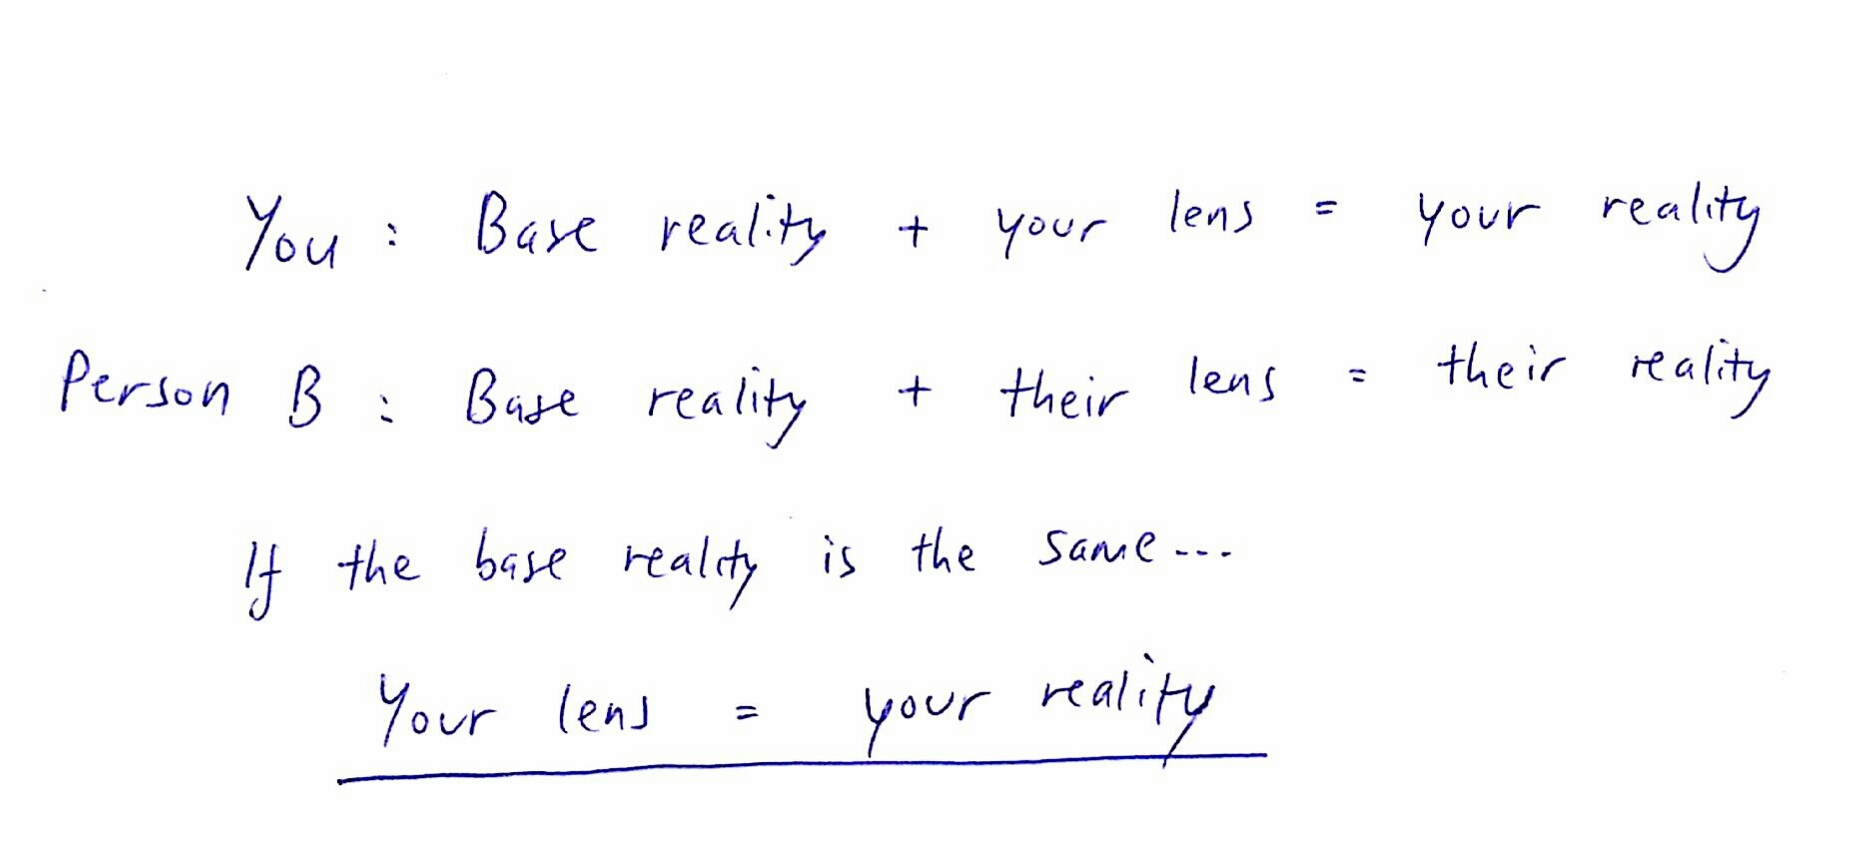 You : Base reality + your lens = your reality
Person B : Base reality + their lens = their reality
If the base reality is the same...
Your lens = your reality